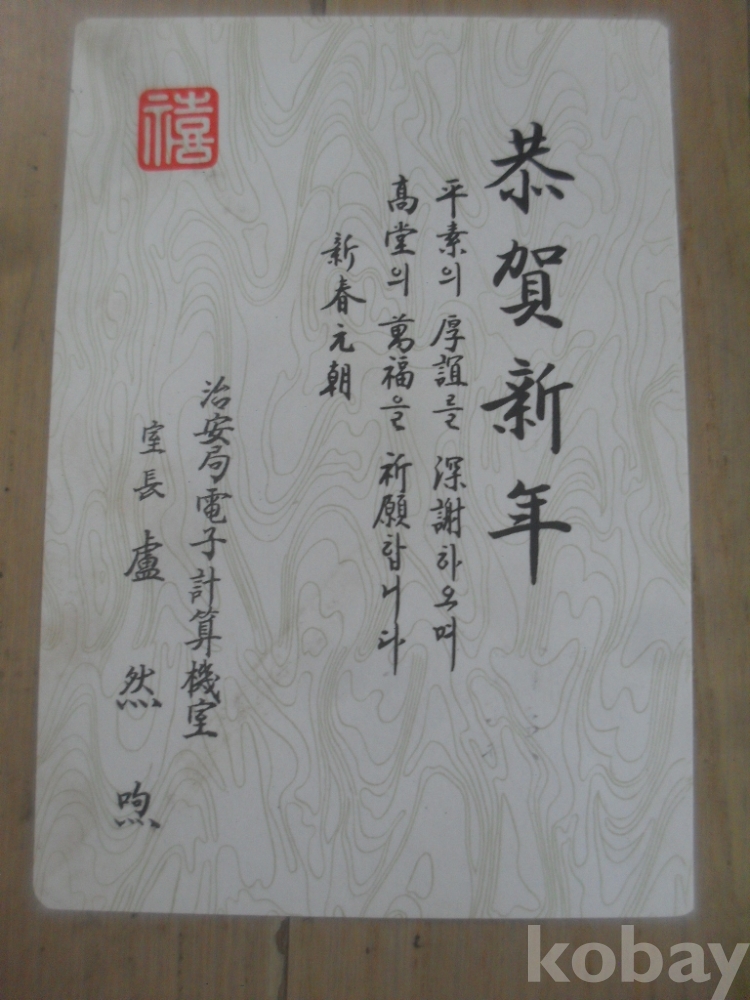 恭賀新年
平素의 厚誼를 深謝하오며
高堂의 萬福을 祈願합니다
新春元朝
治安局電子計算機室
室長 盧 然 煦
禧
kobay